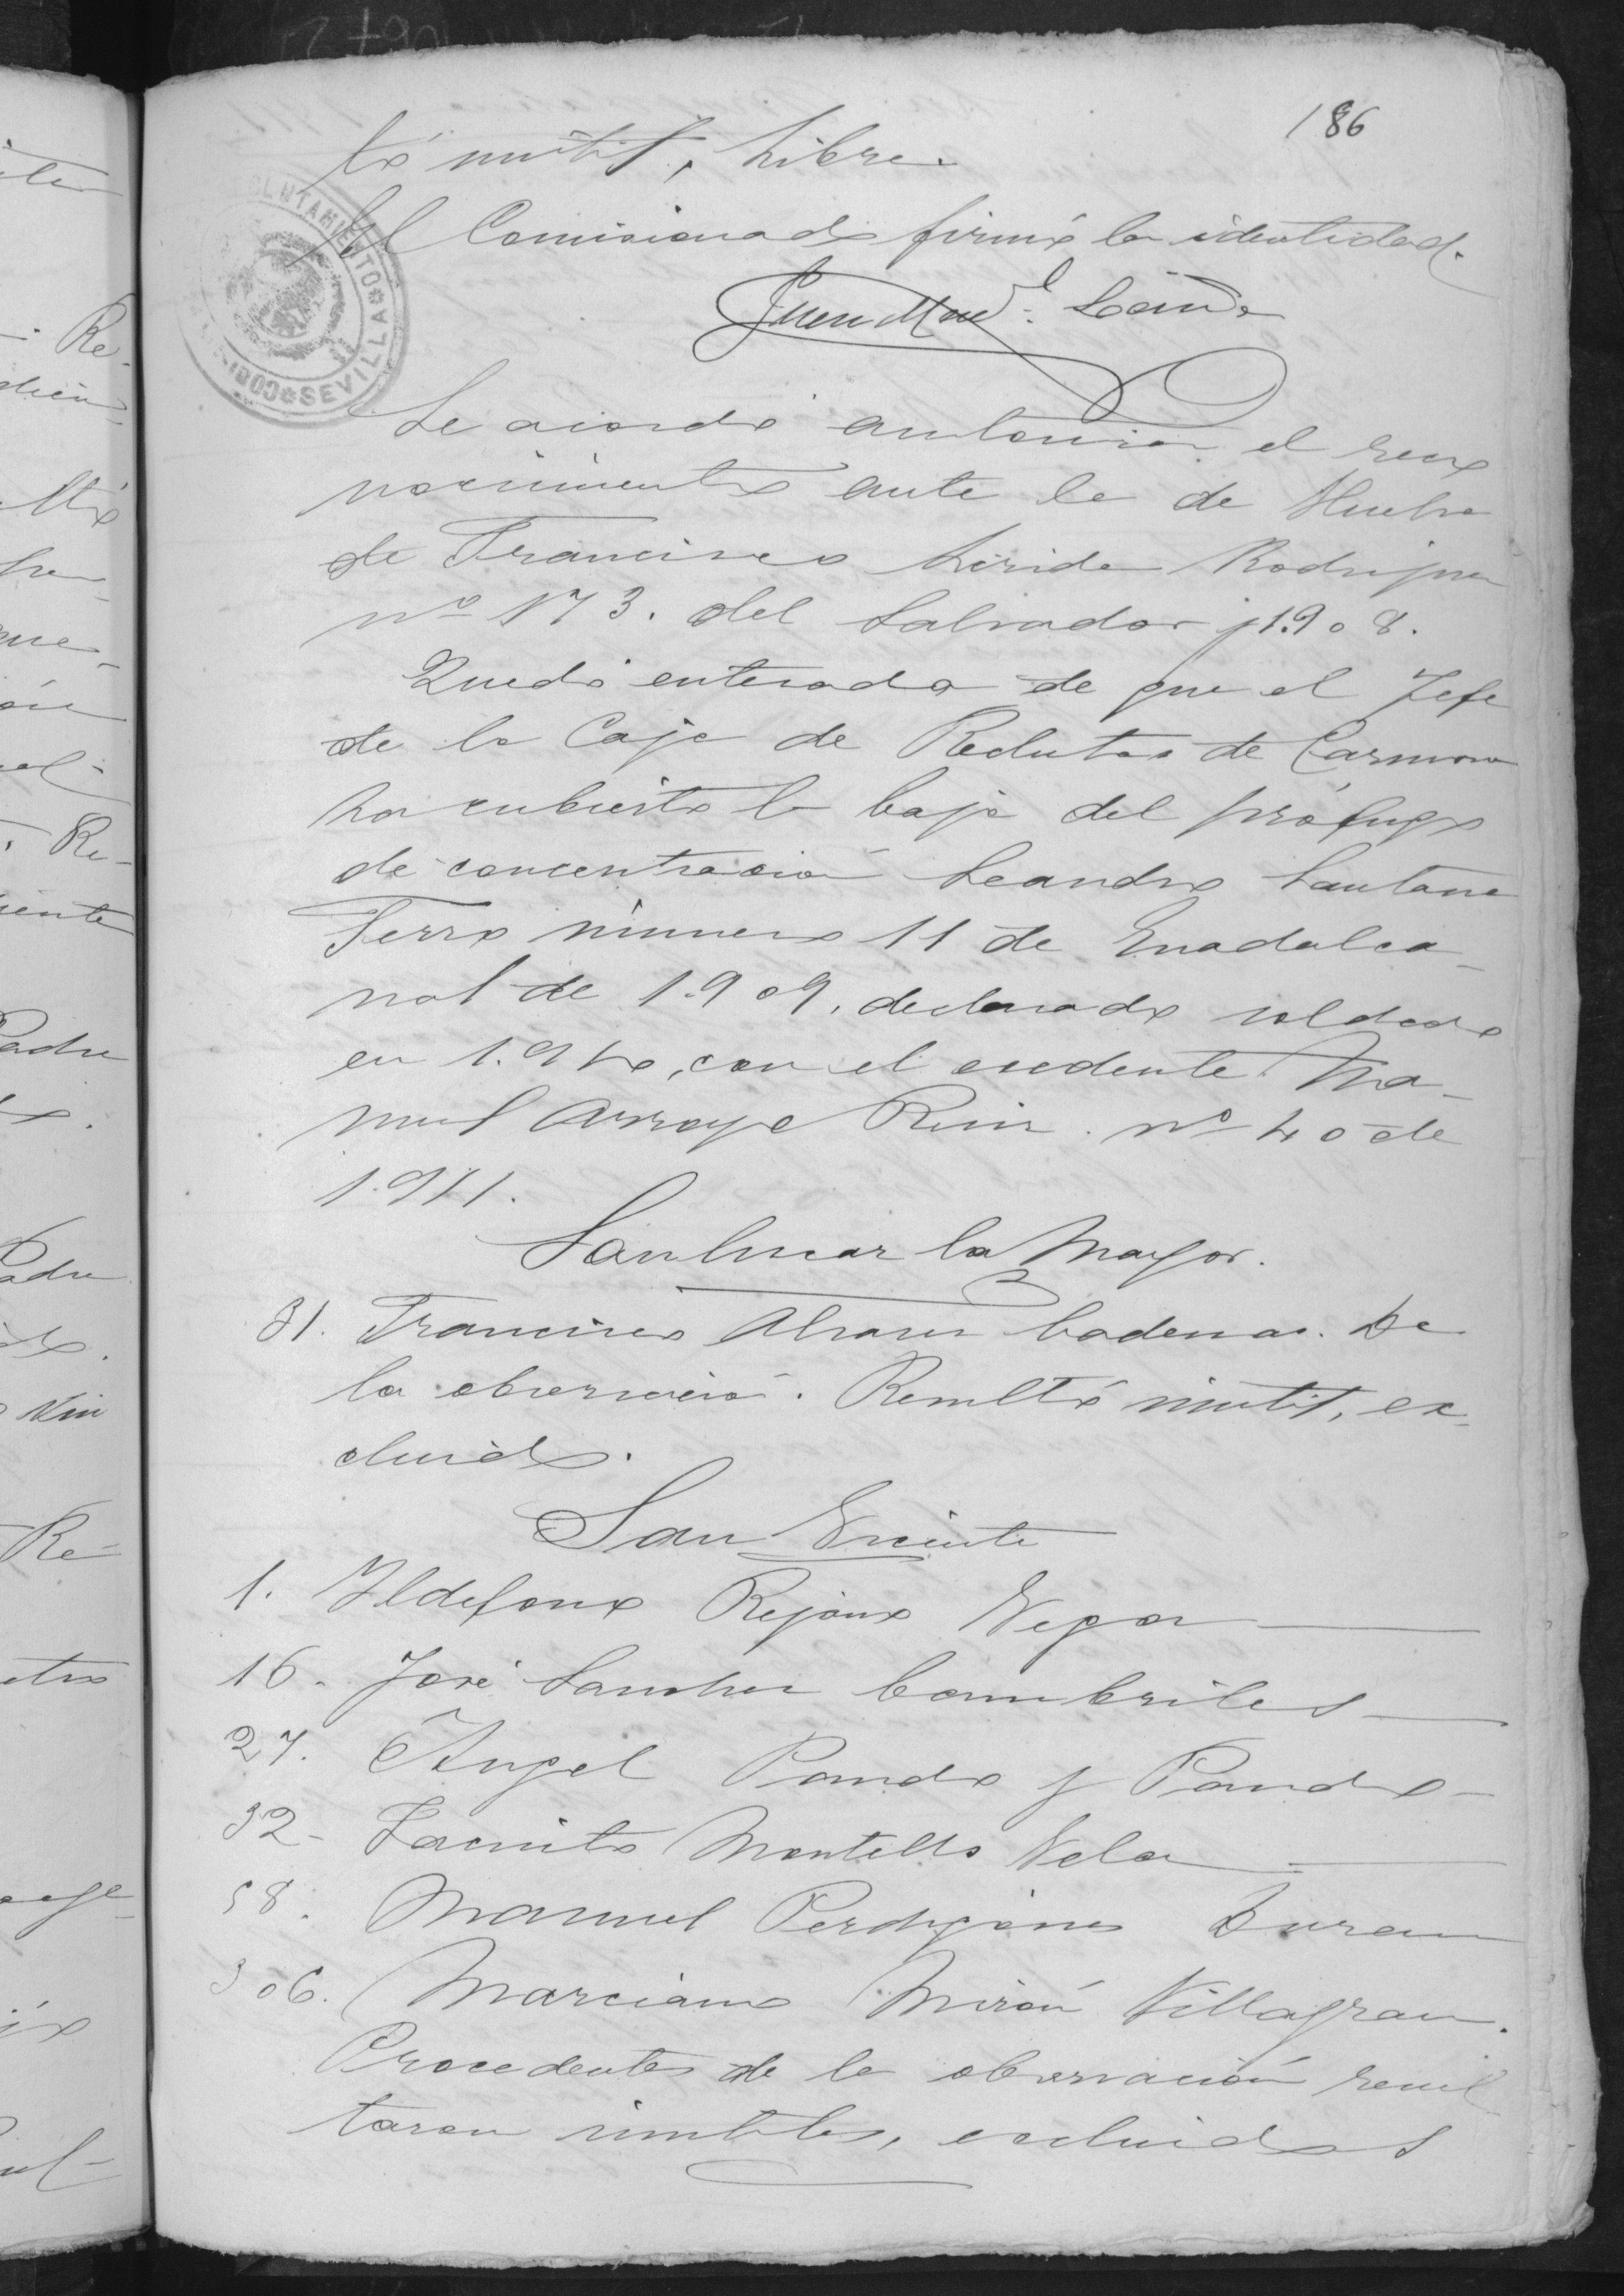 186
tó inutil, Libre.
El Comisionado firmó la identidad.
Juan Man.l
Se acordó autorizar el reco
nocimiento ante la de Huelva
de Francisco Lérida Rodriguez
nº 173. del Salvador y 1.908.
Quedó enterada de que el Jefe
de la Caja de Reclutas de Carmona
ha cubierto la baja del prófugo
de concentración Leandro Santana
Ferro número 11 de Guadalca-
nal de 1.909, declarado soldado
en 1.910, con el excedente Ma-
nuel Arroyo Ruiz. nº 40 de
1.911.
Sanlucar la Mayor.
31. Francisco Alvarez Cadenas. De
la observación. Resultó inutil, ex-
cluido.
San Vicente
1. Ildefonso Rejano Vega
16. José Sanchez Cambriles
27. Angel Pando y Pando
32 - Jacinto Montells Vela
58. Manuel Perdigones Duran
306. Marciano Mirón Villagran.
Procedentes de la observación resul
taron inutiles, excluidos
RECLUTAMIENTO
SEVILLA